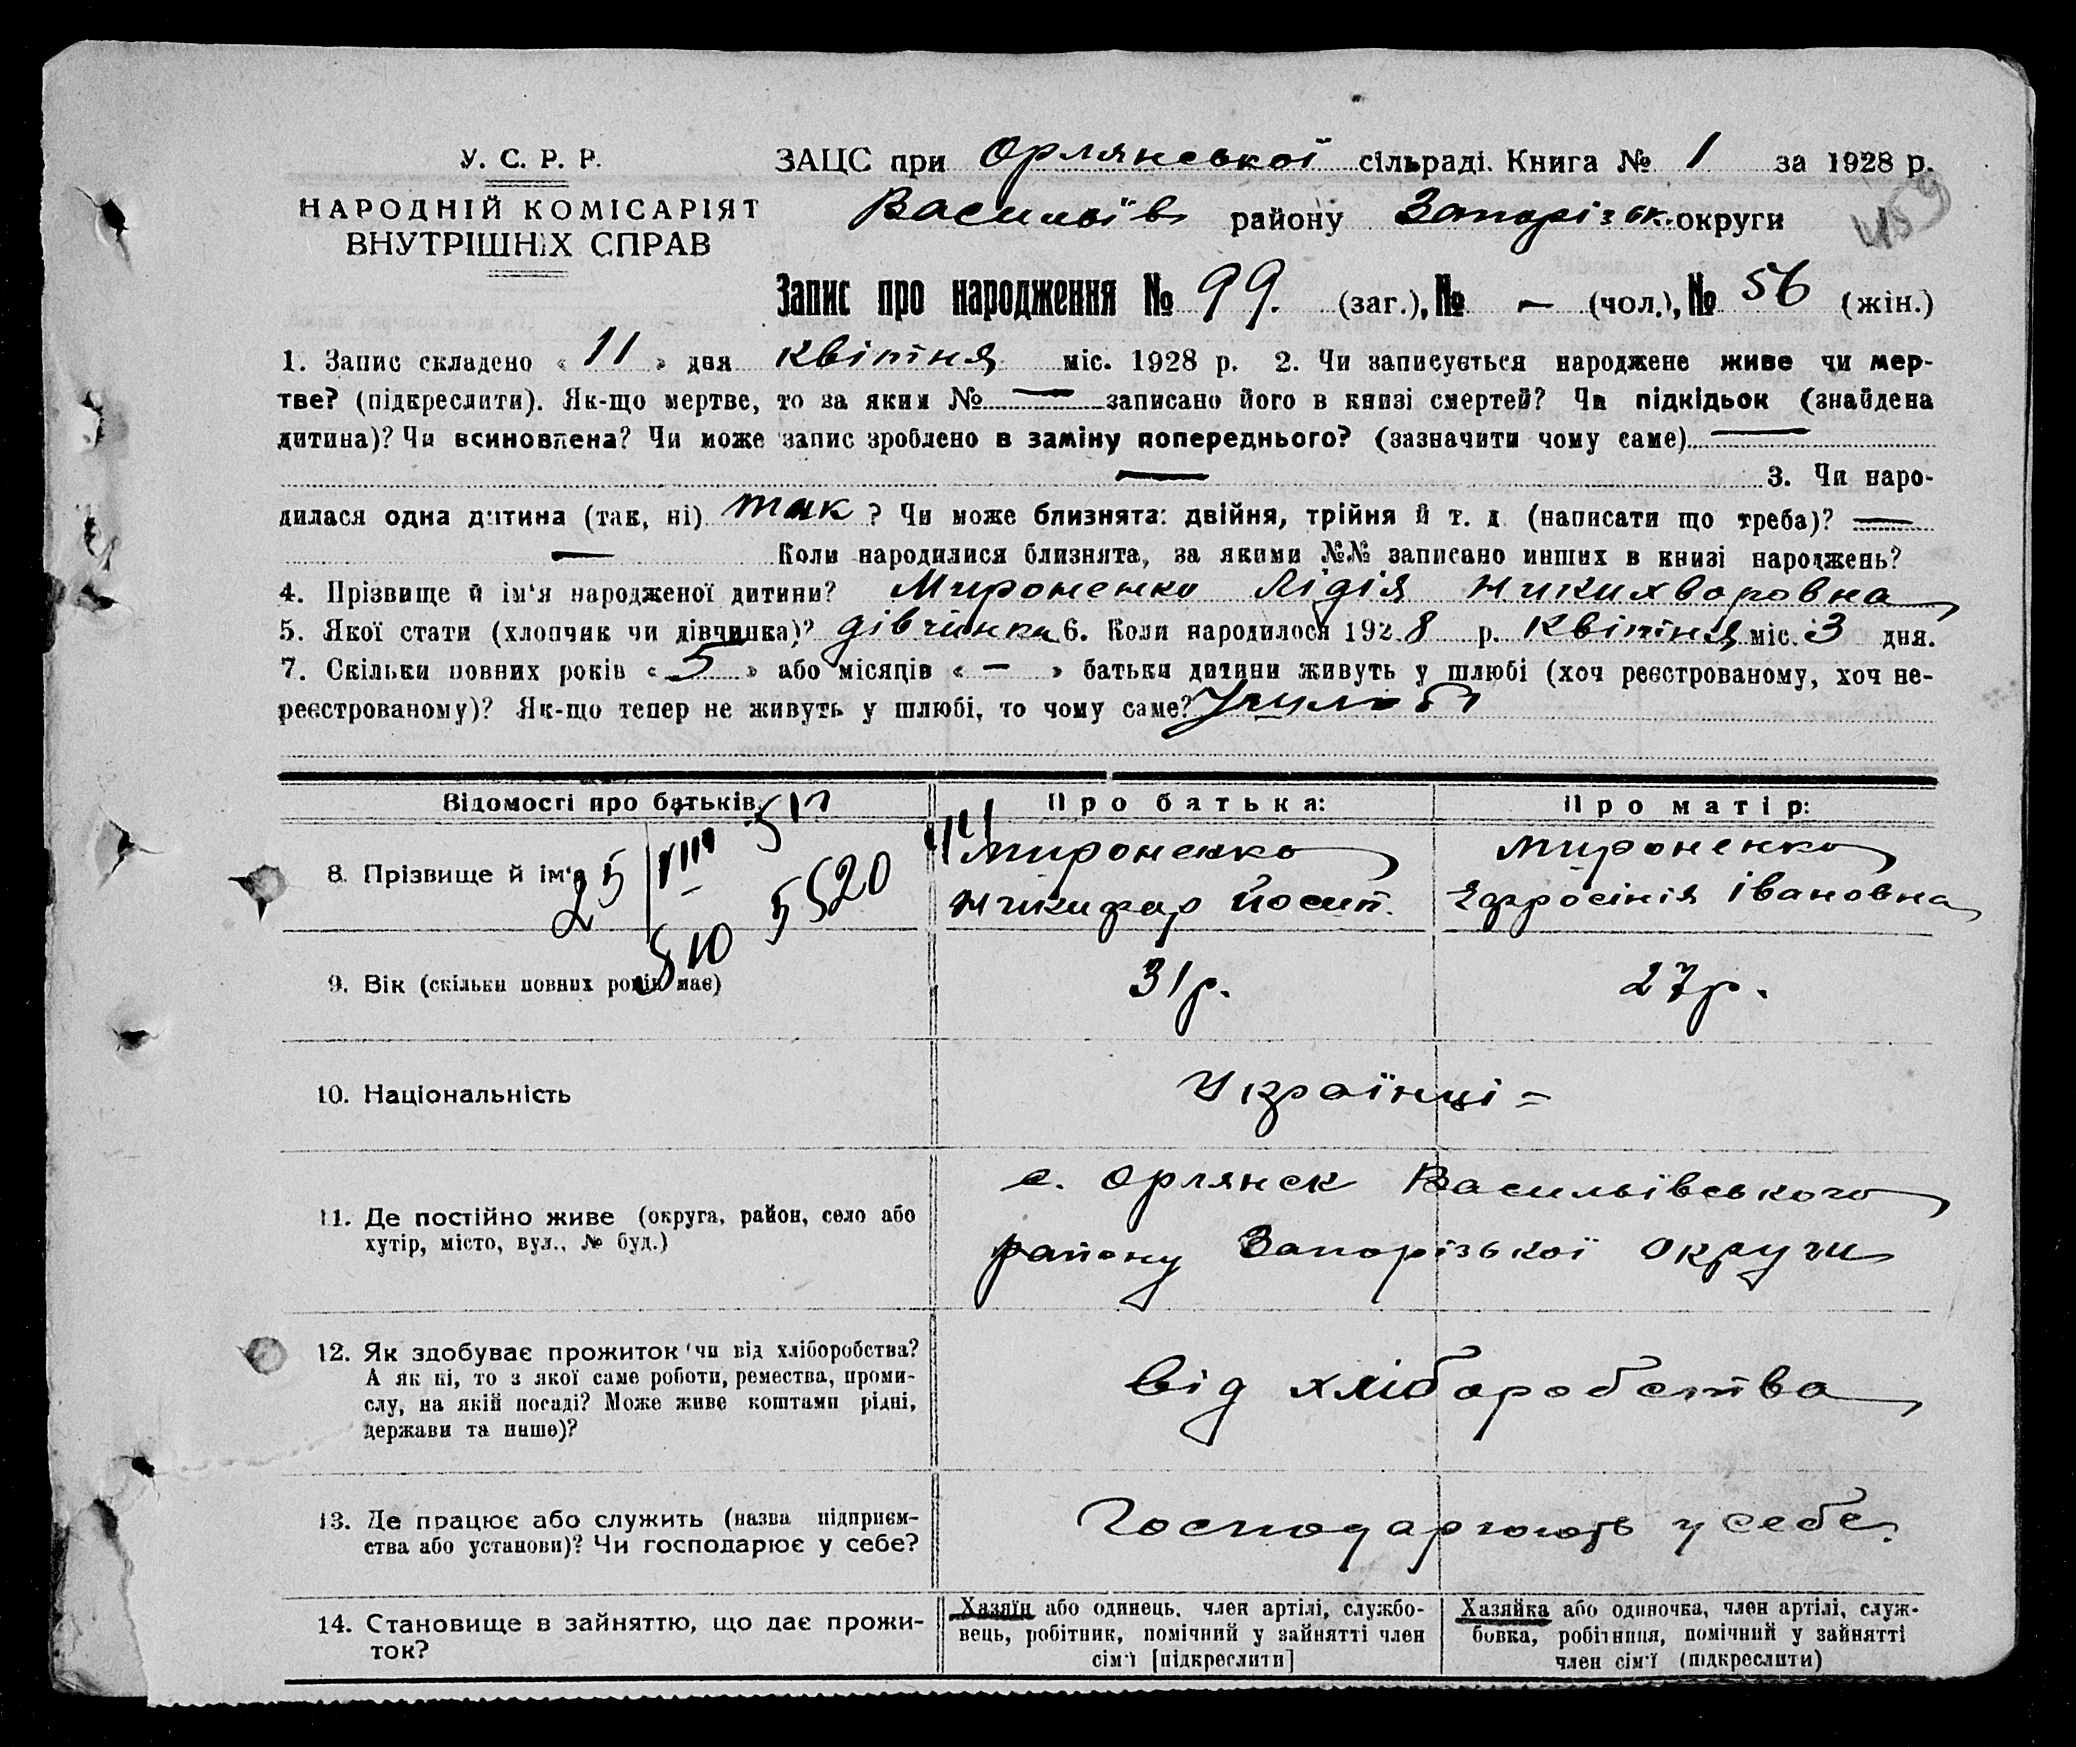 У. С. Р. Р.
НАРОДНІЙ КОМІСАРІЯТ
ВНУТРІШНІХ СПРАВ
ЗАЦС при Орлянської сільраді. Книга № 1 за 1928 р.
Васильїв району Запорізьк. округи
459
Запис про народження № 99. (заг.), № — (чол.), № 56 (жін.)
1. Запис складено « 11 » дня квітня міс. 1928 р. 2. Чи записується народжене живе чи мер-
тве? (підкреслити). Як-що мертве, то за яким № — записано його в книзі смертей? Чи підкідьок (знайдена
дитина)? Чи всиновлена? Чи може запис зроблено в заміну попереднього? (зазначити чому саме) —
— 3. Чи наро-
дилася одна дитина (так, ні) так ? Чи може близнята: двійня, трійня й т. д. (написати що треба)? —
— Коли народилися близнята, за якими №№ записано инших в книзі народжень?
4. Прізвище й ім'я народженої дитини? Мироненко Лідія Никихворовна
5. Якої стати (хлопчик чи дівчинка)? дівчинка 6. Коли народилося 1928 р. квітня міс. 3 дня.
7. Скільки повних років « 5 » або місяців « — » батьки дитини живуть у шлюбі (хоч реєстрованому, хоч не-
реєстрованому)? Як-що тепер не живуть у шлюбі, то чому саме? У шлюбі
Відомості про батьків. Про батька: Про матір:
8. Прізвище й ім'я
25 VIII 510 5520
Мироненко
Никифор Йосип.
Мироненко
Єфросінія Івановна
9. Вік (скільки повних років має) 31 р. 27 р.
10. Національність Українці =
11. Де постійно живе (округа, район, село або
хутір, місто, вул., № буд.)
с. Орлянск Васильївського
району Запорізької округи
12. Як здобуває прожиток чи від хліборобства?
А як ні, то з якої саме роботи, ремества, проми-
слу, на якій посаді? Може живе коштами рідні,
держави та инше)?
від хліборобства
13. Де працює або служить (назва підприєм-
ства або установи)? Чи господарює у себе?
Господарюють у себе.
14. Становище в зайняттю, що дає прожи-
ток?
Хазяїн або одинець, член артілі, службо-
вець, робітник, помічний у зайнятті член
сім'ї [підкреслити]
Хазяйка або одиночка, член артілі, служ-
бовка, робітниця, помічний у зайнятті
член сім'ї (підкреслити)